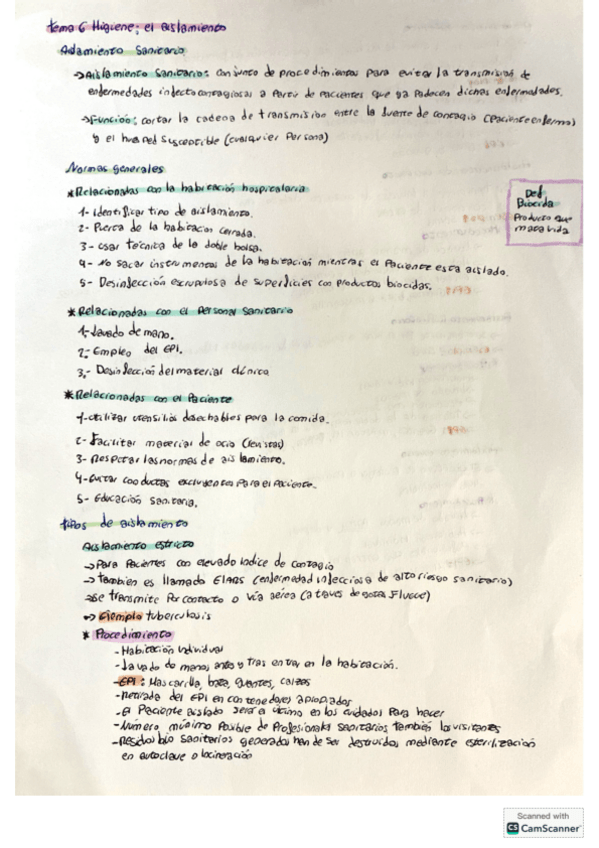 tema 6 Higiene: el aislamiento
Aislamiento Sanitario
→Aislamiento Sanitario: conjunto de procedimientos para evitar la transmisión de
enfermedades infectocontagiosas a Partir de Pacientes que ya Padecen dichas enfermedades.
→Función: cortar la cadena de transmisión entre la fuente de contagio (Paciente enfermo)
y el huesped susceptible (cualquier Persona)
Normas generales
*Relacionadas con la habitación hospitalaria
1- Identificar tipo de aislamiento.
2- Puerta de la habitacion cerrada.
3- Usar tecnica de la doble bolsa.
4- No sacar instrumentos de la habitación mientras el Paciente esta aislado.
5- Desinfección escrupulosa de superficies con productos biocidas.
Def.
Biocida
Producto que
mata vida
*Relacionadas con el Personal Sanitario
1- Lavado de mano.
2- Empleo del EPI.
3.- Desinfección del material clínica
*Relacionadas con el Paciente
1-Utilizar utensilios desechables para la comida.
2- Facilitar material de ocio (revistas)
3- Respetar las normas de aislamiento.
4-Evitar conductas excluyentes Para el Paciente.
5- Educación Sanitaria.
tipos de aislamiento
Aislamiento estricto
→Para Pacientes con elevado indice de contagio
→tambien es llamado EIARS (enfermedad infecciosa de alto riesgo sanitario)
→se transmite Por contacto o vía aérea (a traves de gotas Flugge)
→ Ejemplo tuberculosis
* Procedimiento
-Habitación Individual
-Lavado de manos antes y tras entrar en la habitación.
-EPI: Mascarilla, bata, guantes, calzas
-Retirada del EPI en contenedores apropiados
-El Paciente aislado será el último en los cuidados Para hacer
-Número mínimo Posible de Profesionales sanitarios también los visitantes
-Residuos bio sanitarios generados han de ser destruidos mediante esterilización
en autoclave o incineración
Scanned with
CS CamScanner